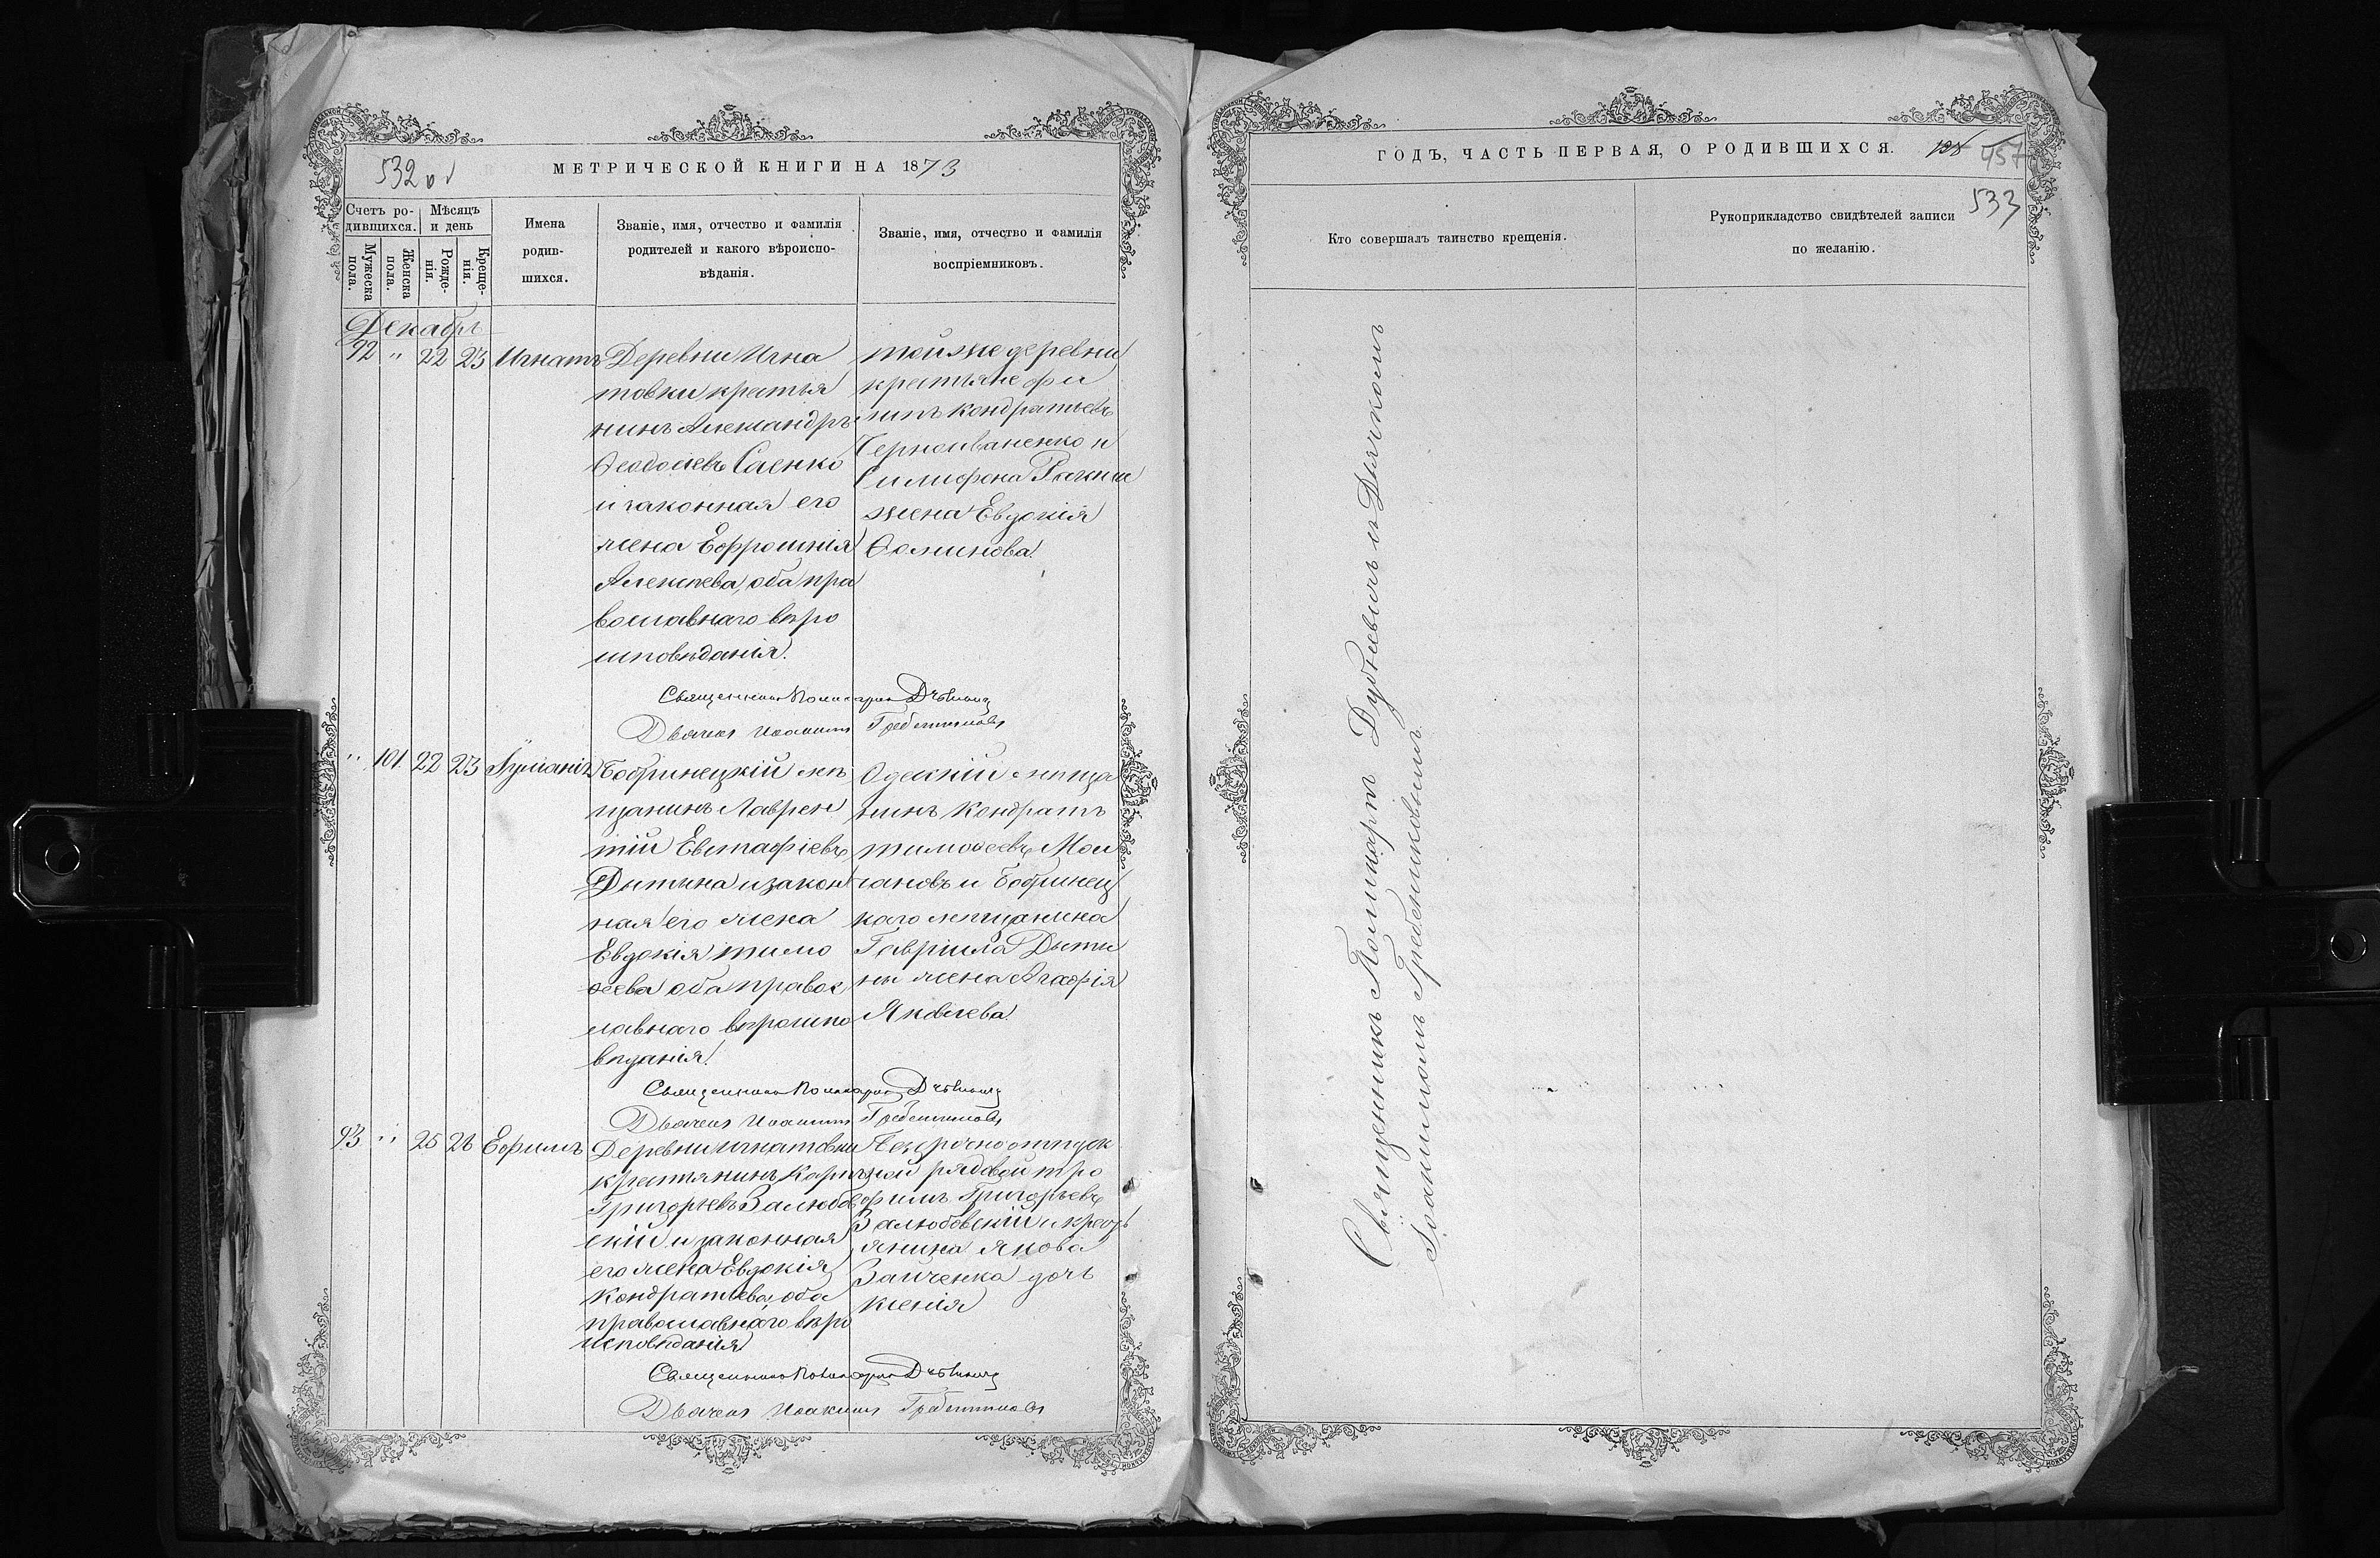 532 об
МЕТРИЧЕСКОЙ КНИГИ НА 1873
Счетъ ро-
дившихся.
Мужеска
пола.
Женска
пола.
Мѣсяцъ
и день
Рожде-
нія.
Креще-
нія.
Имена
родив-
шихся.
Званіе, имя, отчество и фамилія
родителей и какого вѣроиспо-
вѣданія.
Званіе, имя, отчество и фамилія
воспріемниковъ.
Декабрь
92 " 22 23 Игнатъ
Деревни Игна
товки крестья
нинъ Александръ
Ѳеодосіевъ Саенко
и законная его
жена Ефросинія
Алексѣева, оба пра
вославнаго вѣро
исповѣданія.
той же деревни
крестьяне Фи
липъ Кондратьевъ
Черноиваненко и
жена Евдокія
Ѳоминова.
Священникъ Поликарпъ
Дьячокъ Иоакимъ Гребенниковъ
" 101 22 23 Іуліанія
Бобринецкій мѣ
щанинъ Лаврен
тій Евстафіевъ
Дытына и закон
ная его жена
Евдокія Тимо
ѳеева оба правос
лавнаго вѣроиспо
вѣданія.
Одескій мѣща
нинъ Кондратъ
Тимоѳеевъ Мол
чановъ и Бобринец
каго мѣщанина
Гавріила Дыты
ны жена Агафія
Яковлева.
Священникъ Поликарпъ
Дьячокъ Иоакимъ Гребенниковъ
93 " 25 26 Ефимъ
Деревни Игнатовки
крестьянинъ Карпъ
Григорьевъ Залюбов
скій и законная
его жена Евдокія
Кондратьева, оба
православнаго вѣро
исповѣданія
Безсрочноотпуск
ной рядовой Тро
фимъ Григорьевъ
Залюбовскій и крест
янина Якова
Зайченка дочь
Ксенія
Священникъ Поликарпъ
Дьячокъ Иоакимъ Гребенниковъ
ГОДЪ, ЧАСТЬ ПЕРВАЯ, О РОДИВШИХСЯ.
457
533
Кто совершалъ таинство крещенія.
Рукоприкладство свидѣтелей записи
по желанію.
Священникъ Поликарпъ Дубневичъ съ Дьячкомъ
Іоакимомъ Гребенниковымъ